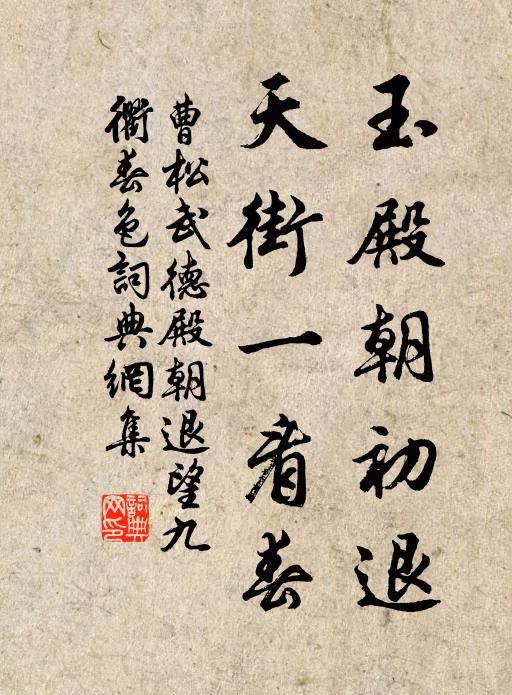 玉殿朝初退
天街一看春
曹松武德殿朝退望九
衢春色詞典網集
詞典網印